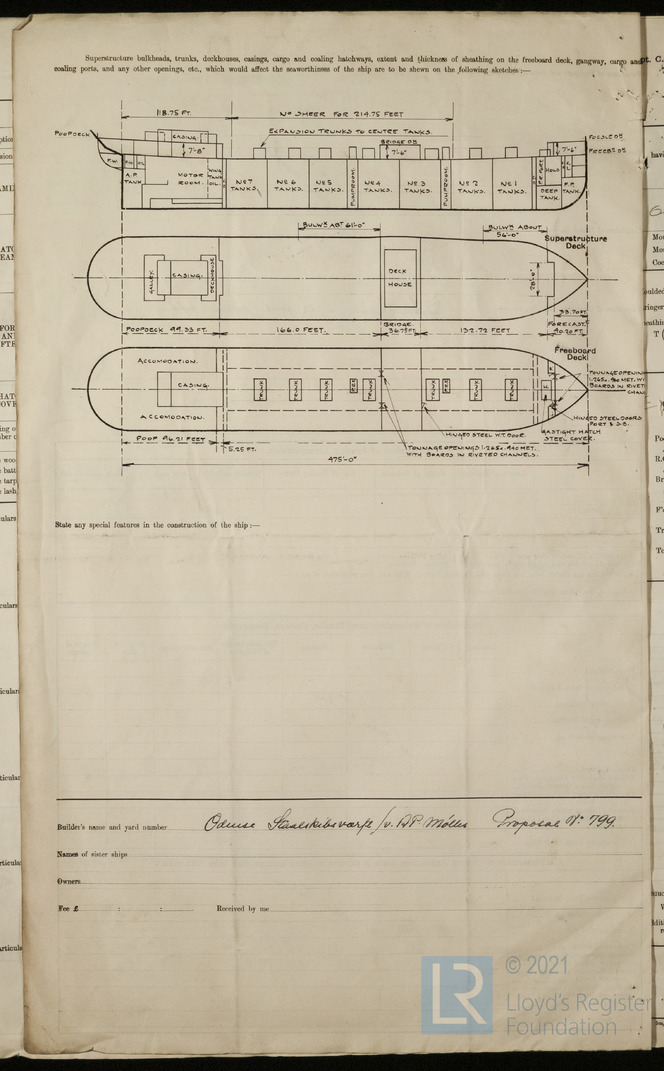 Superstructure bulkheads, trunks, deckhouses, casings, cargo and coaling hatchways, extent and thickness of sheathing on the freeboard deck, gangway, cargo and
coaling ports, and any other openings, etc., which would affect the seaworthiness of the ship are to be shewn on the following sketches :—
118.75 FT.
No SHEER FOR 214.75 FEET
EXPANSION TRUNKS TO CENTRE TANKS.
POOPDECK
CASING
7'-8"
BRIDGE DK
7'-6"
7'-6"
FOCSLE DK
FREEB'D DK
F.W.
A.P. TANK
MOTOR ROOM.
OIL
No 7 TANKS.
No 6 TANKS.
No 5 TANKS.
PUMPROOM.
No 4 TANKS.
No 3 TANKS.
PUMPROOM.
No 2 TANKS.
No 1 TANKS.
HOLD
DEEP TANK.
F.P. TANK
BULWK ABT 61'-0"
BULWK ABOUT 56'-0"
Superstructure Deck.
GALLEY.
CASING.
DECKHOUSE
DECK HOUSE
28'-0"
33.70 FT.
POOPDECK 99.33 FT.
166.0 FEET.
BRIDGE 36.75 FT.
132.72 FEET
FORECAST. 40.20 FT.
Freeboard Deck.
ACCOMODATION.
CASING.
ACCOMODATION.
TRUNK
TRUNK
TRUNK
TRUNK
TRUNK
TRUNK
TRUNK
H.
TONNAGE OPENING
BOARDS IN RIVET
HINGED STEEL DOORS PORT & S.B.
GASTIGHT HATCH STEEL COVER.
HINGED STEEL W.T. DOOR.
POOP 96.21 FEET
5.25 FT.
TONNAGE OPENINGS 1.265x.940 MET.
WITH BOARDS IN RIVETED CHANNELS.
475'-0"
State any special features in the construction of the ship :—
Builder's name and yard number Odense Staalskibsværft /v. A.P. Möller Proposal No. 799.
Names of sister ships
Owners
Fee £ : :
Received by me
LR
© 2021
Lloyd's Register
Foundation